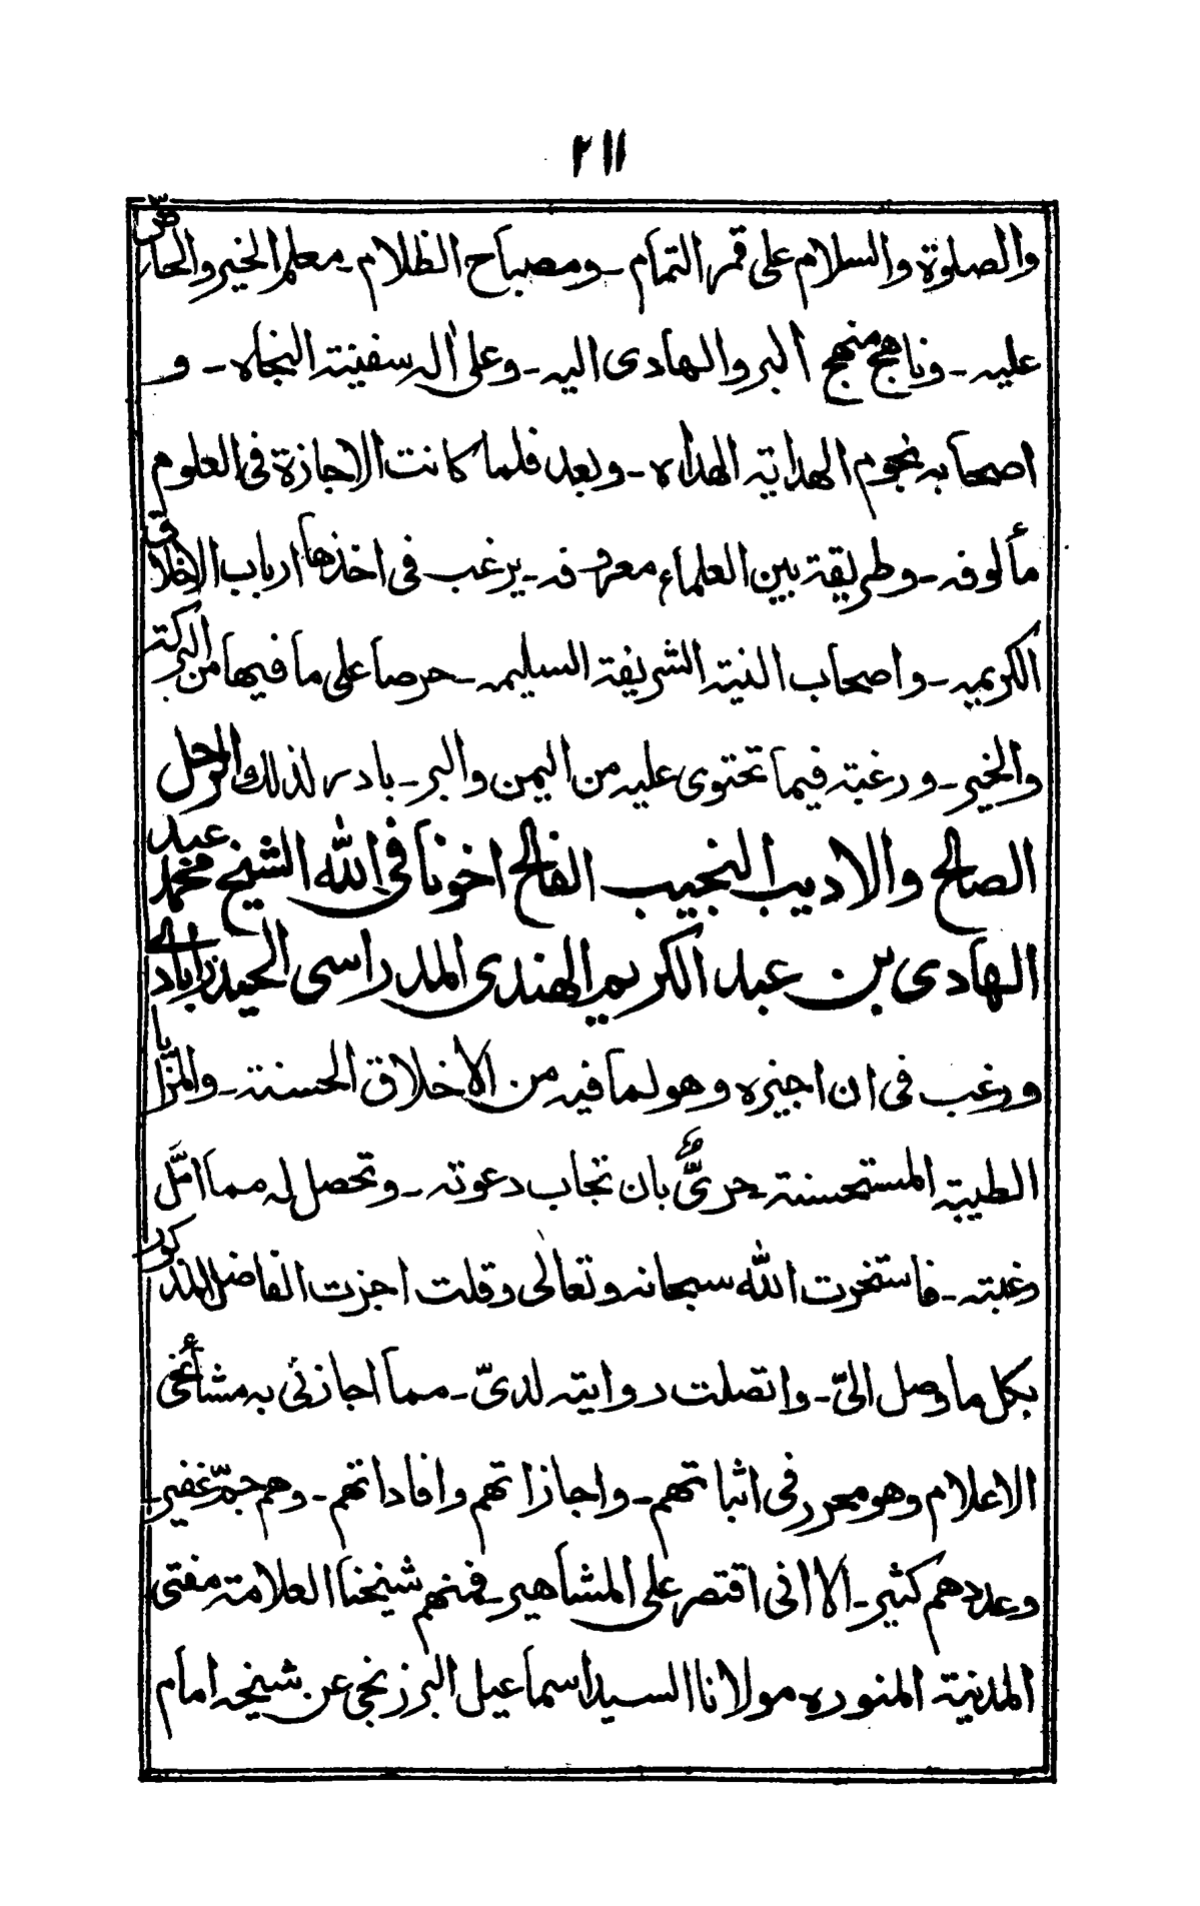 ٢١١
والصلوة والسلام على قمر التمام ـ ومصباح الظلام ـ معلم الخير والحاض
عليه ـ وناهج منهج البر والهادى اليه ـ وعلى اٰله سفينة النجاه ـ و
اصحابه نجوم الهداية الهداه ـ وبعد فلما كانت الاجازة فى العلوم
مألوفه ـ وطريقة بين العلماء معروفه ـ يرغب فى اخذها ارباب الاخلاق
الكريمه ـ واصحاب النية الشريفة السليمه ـ حرصا على ما فيها من البركة
والخير ـ ورغبة فيما تحتوى عليه من اليمن والبر ـ بادر لذلك الرجل
الصالح والاديب النجيب الفالح اخونا فى الله الشيخ محمد عبد
الهادى بن عبد الكريم الهندى المدراسى الحيدرابادے
ورغب فى ان اجيزه وهو لما فيه من الاخلاق الحسنة ـ والمزايا
الطيبة المستحسنة ـ حرىٌّ بان تجاب دعوته ـ وتحصل له مما امَّل
رغبته ـ فاستخرت الله سبحانه وتعالٰى وقلت اجزت الفاضل المذكور
بكل ما وصل الىّ ـ واتصلت روايته لدىّ ـ مما اجازنى به مشائخى
الاعلام وهو محرر فى اثباتهم ـ واجازاتهم وافاداتهم ـ وهم جمّ غفير ـ
وعددهم كثير ـ الا انى اقتصر على المشاهير ـ فمنهم شيخنا العلامة مفتى
المدنية المنوره مولانا السيد اسماعيل البرزنجى عن شيخه امام